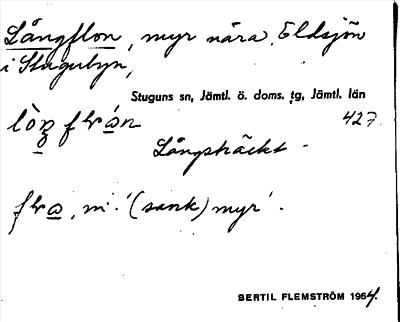 Långflon, myr nära Eldsjön
i Stugubyn,
Stuguns sn, Jämtl. ö. doms. tg, Jämtl. län
427
Långsträckt.
m. '(sank) myr'.
BERTIL FLEMSTRÖM 1964.